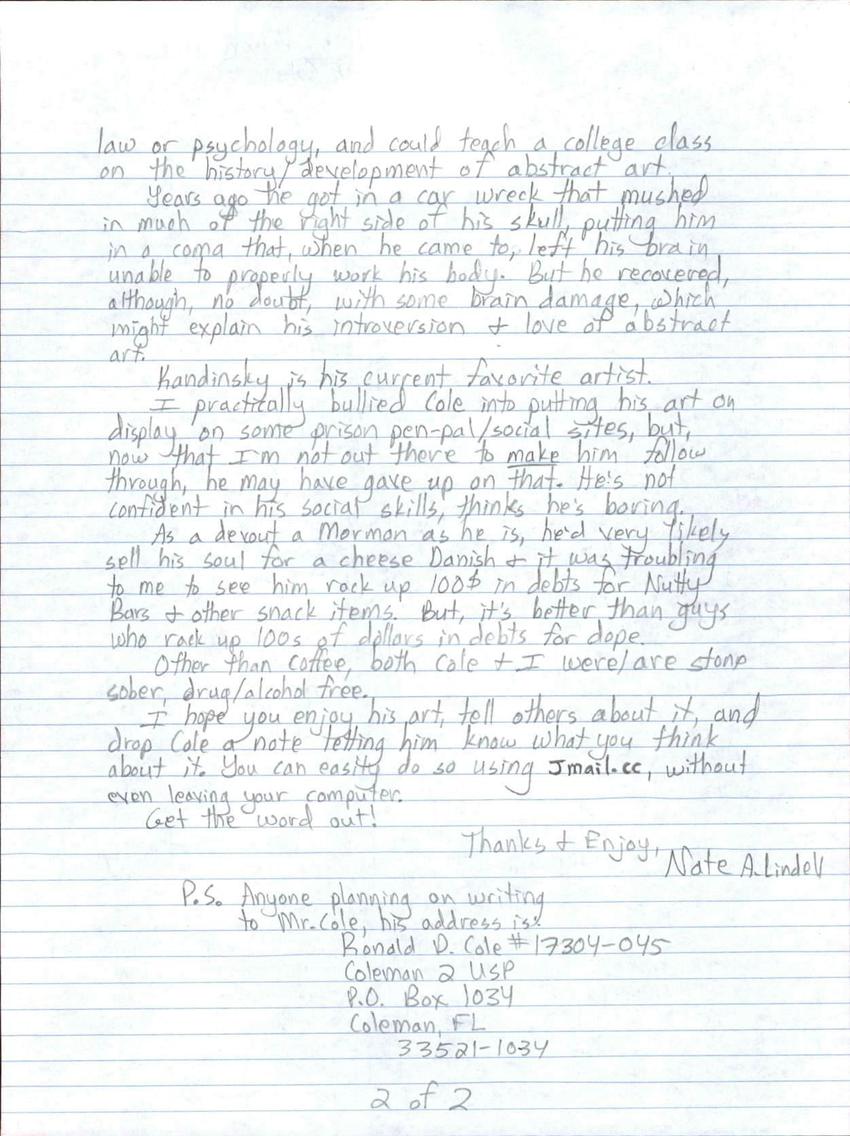 law or psychology, and could teach a college class
on the history/development of abstract art.
Years ago he got in a car wreck that mushed
in much of the right side of his skull, putting him
in a coma that, when he came to, left his brain
unable to properly work his body. But he recovered,
although, no doubt, with some brain damage, which
might explain his introversion & love of abstract
art.
Kandinsky is his current favorite artist.
I practically bullied Cole into putting his art on
display on some prison pen-pal/social sites, but,
now that I'm not out there to make him follow
through, he may have gave up on that. He's not
confident in his social skills, thinks he's boring.
As a devout a Mormon as he is, he'd very likely
sell his soul for a cheese Danish & it was troubling
to me to see him rack up 100$ in debts for Nutty
Bars & other snack items. But, it's better than guys
who rack up 100s of dollars in debts for dope.
Other than coffee, both Cole & I were/are stone
sober, drug/alcohol free.
I hope you enjoy his art, tell others about it, and
drop Cole a note letting him know what you think
about it. You can easily do so using Jmail.cc, without
even leaving your computer.
Get the word out!
Thanks & Enjoy,
Nate A. Lindell
P.S. Anyone planning on writing
to Mr. Cole, his address is:
Ronald D. Cole #17304-045
Coleman 2 USP
P.O. Box 1034
Coleman, FL
33521-1034
2 of 2